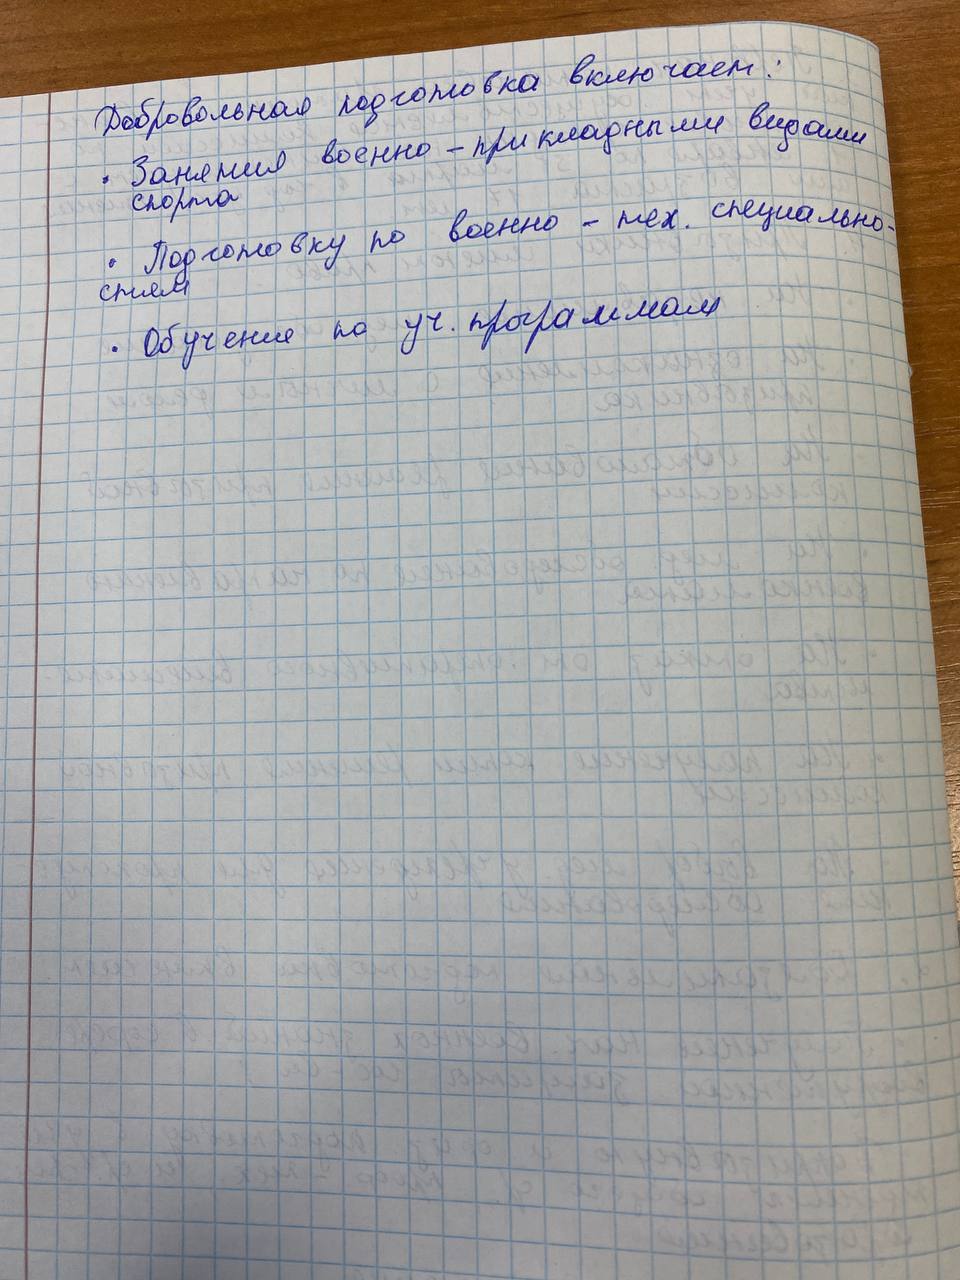 Добровольная подготовка включает:
· Занятия военно-прикладными видами
спорта
· Подготовку по военно-тех. специально-
стям
· Обучение по уч. программам